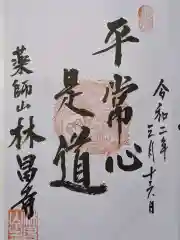 令和二年三月十六日
平常心
是道
薬師山林昌寺